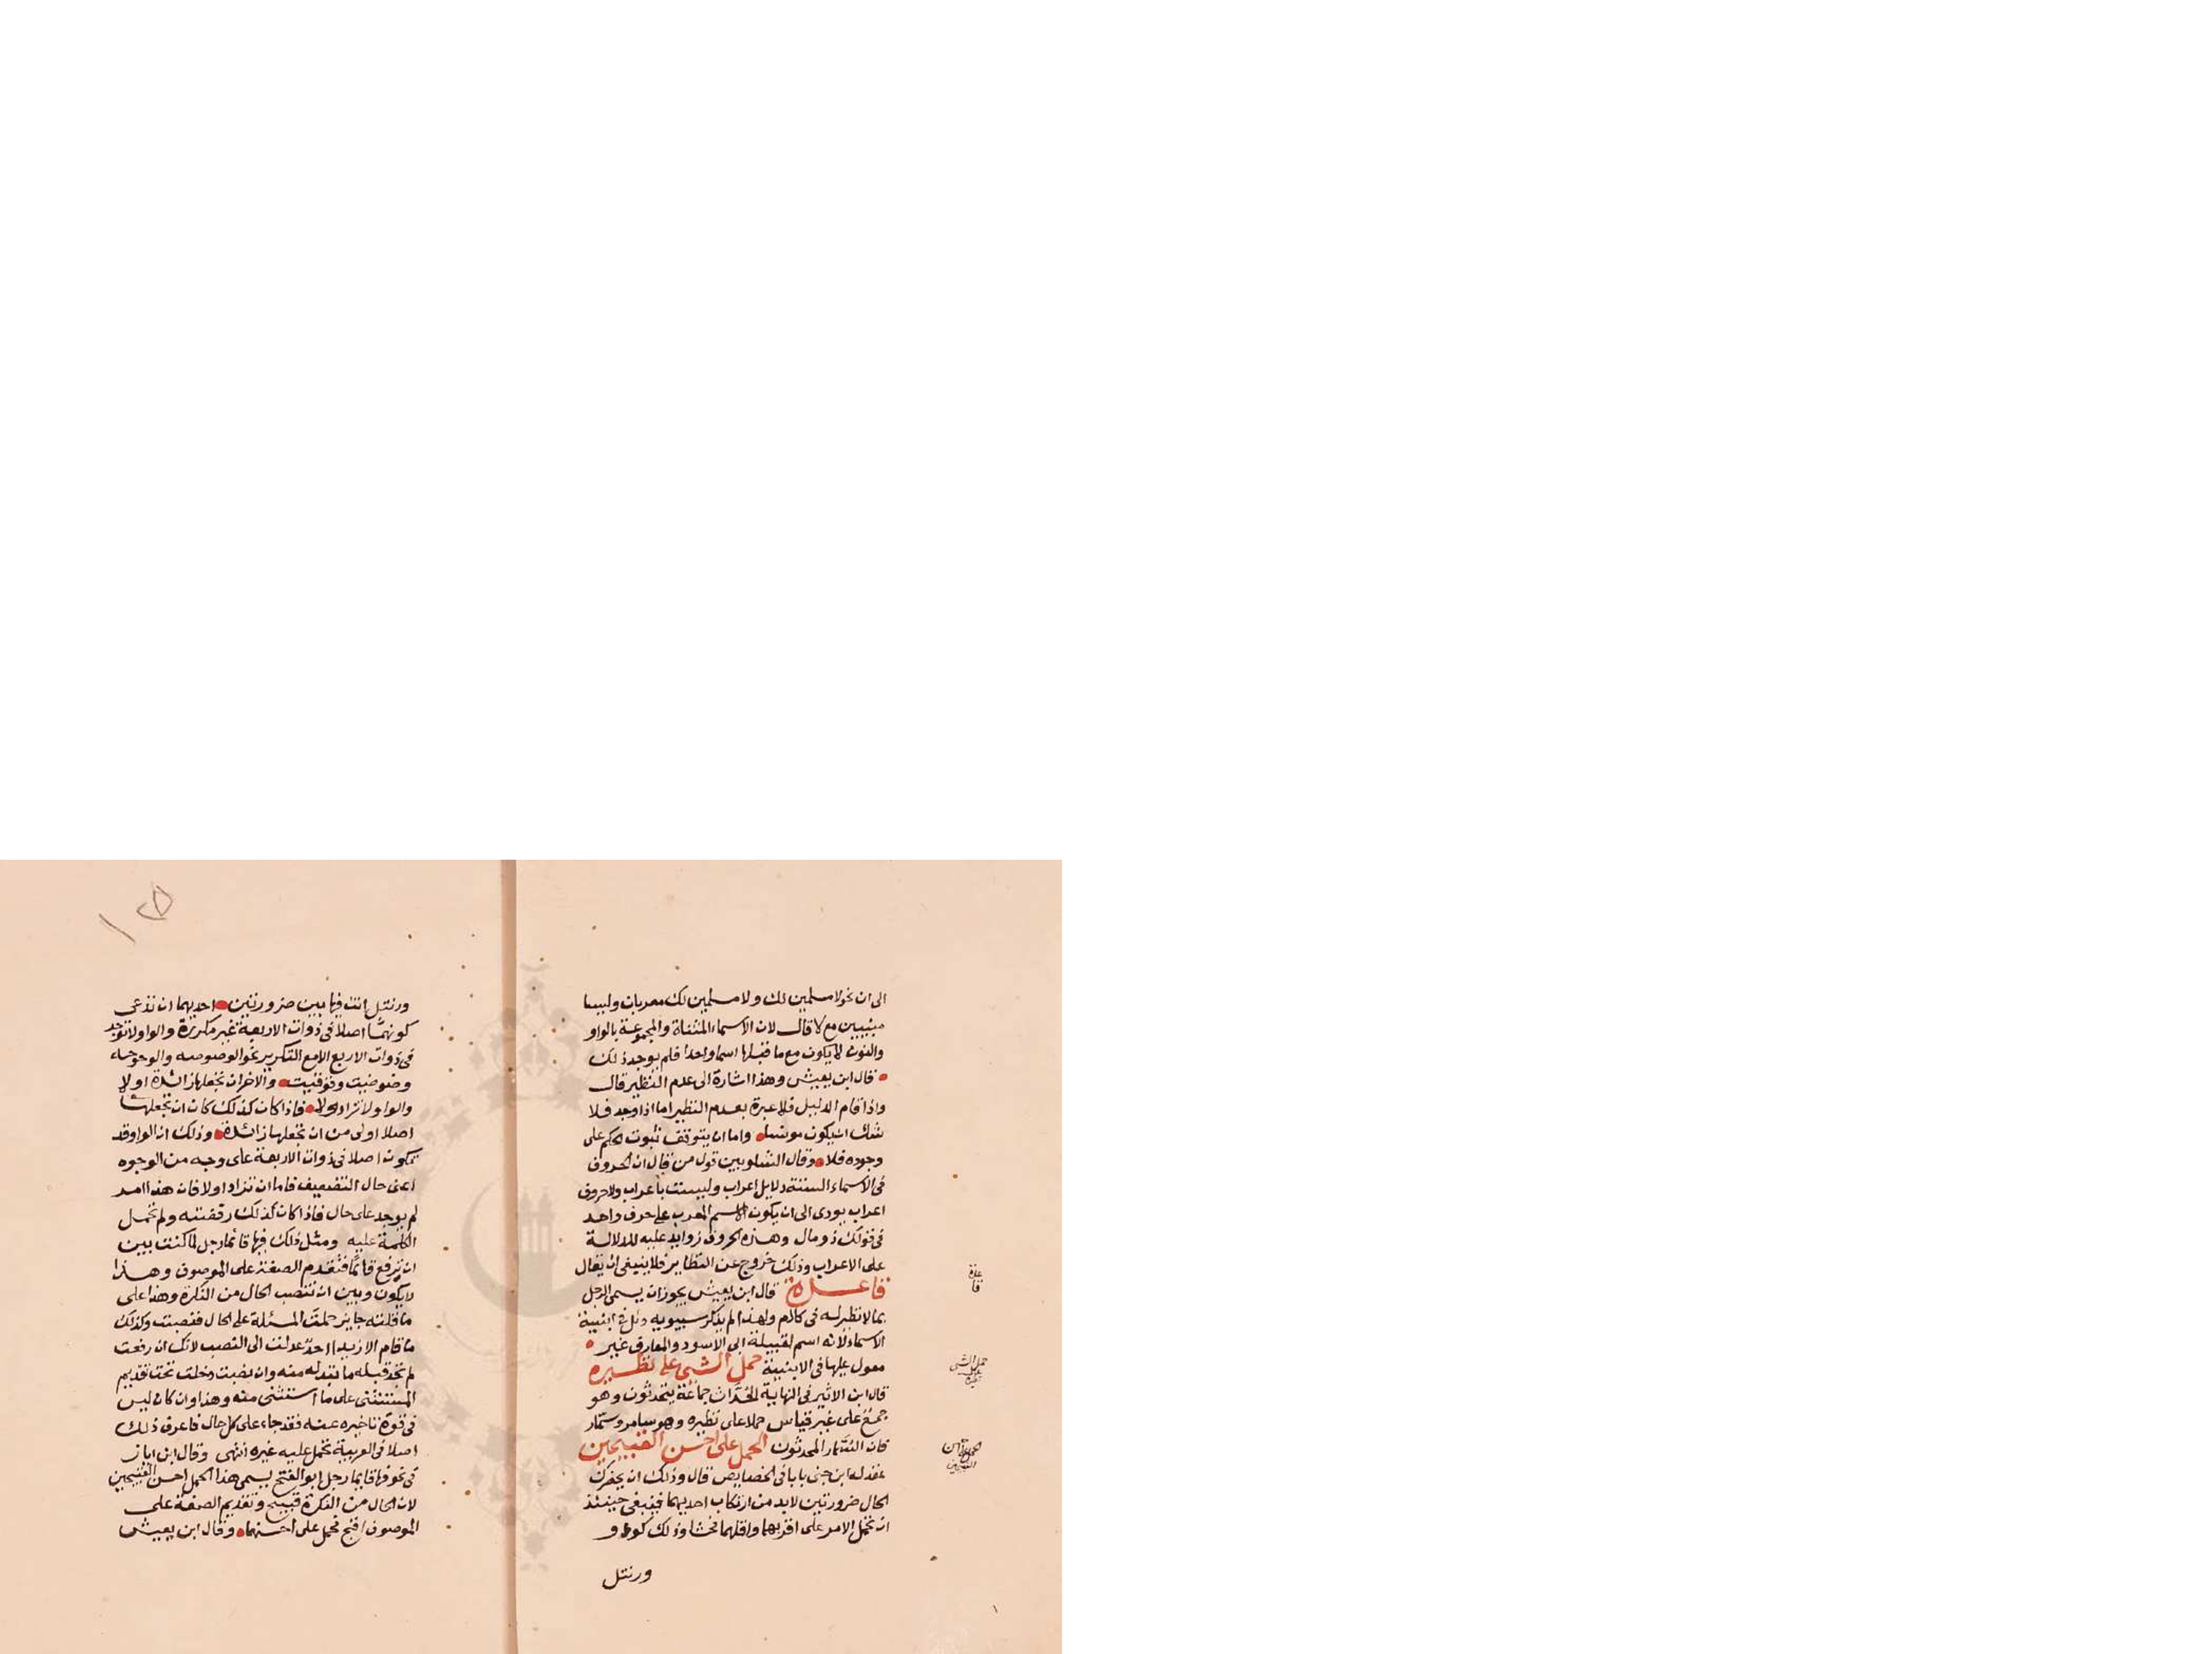 الى ان نحو لا مسلمين لك ولا مسلمين لك معربان وليسا
مبنيين مع لا قال لان الاسماء المثناة والمجموعة بالواو
والنون لا يكون مع ما قبلها اسما واحدا فلم يوجد ذلك
قال ابن يعيش وهذا اشارة الى عدم النظير قال
واذا قام الدليل فلا عبرة بعدم النظير اما اذا وجد فلا
شك ان يكون مونسا واما ان يتوقف ثبوت الحكم على
وجوده فلا وقال الشلوبين قول من قال ان الحروف
فى الاسماء الستة دلايل اعراب وليست باعراب ولا حروف
اعراب يودى الى ان يكون الاسم المعرب على حرف واحد
فى قولك ذو مال وهذه الحروف زوايد عليه للدلالة
على الاعراب وذلك خروج عن النظاير فلا ينبغى ان يقال
قاعدة قال ابن يعيش يجوز ان يسمى الرجل
بما لا نظير له فى كلام ولهذا لم يذكر سيبويه دئل فى ابنية
الاسماء لانه اسم لقبيلة ابى الاسود والمعارف غير
معول عليها فى الابنية حمل الشى على نظيره
قال ابن الاثير فى النهاية الحداث جماعة يتحدثون وهو
جمع على غير قياس حملا على نظيره وهو سامر وسمار
فان السمار المحدثون الحمل على احسن القبيحين
عقد له ابن جنى بابا فى الخصايص قال وذلك ان يحضرك
الحال ضرورتين لابد من ارتكاب احديهما فينبغى حينئذ
ان تحمل الامر على اقربهما واقلهما فحشا وذلك كواو
ورنتل
قاعدة
حمل الشى
على
نظيره
الحمل على احسن
القبيحين
ورنتل انت فيها بين ضرورتين احديهما ان تدعى
كونها اصلا فى ذوات الاربعة غير مكررة والواو لا توجد
فى ذوات الاربع الا مع التكرير نحو الوصوصه والوحوحة
وضوضيت وقوقيت والاخر ان تجعلها زائدة اولا
والواو لا تزاد اولا فاذا كان كذلك كان ان تجعلها
اصلا اولى من ان تجعلها زائدة وذلك ان الواو قد
تكون اصلا فى ذوات الاربعة على وجه من الوجوه
اعنى حال التضعيف فاما ان تزاد اولا فان هذا امر
لم يوجد على حال فاذا كان كذلك رفضته ولم تحمل
الكلمة عليه ومثل ذلك فيها قائما رجل لما كنت بين
ان ترفع قائما فتقدم الصفة على الموصوف وهذا
لا يكون وبين ان تنصب الحال من النكرة وهذا على
ما قلته جايز حملت المسئلة على الحال فنصبت وكذلك
ما قام الا زيدا احد عدلت الى النصب لانك ان رفعت
لم تجد قبله ما تبدله منه وان نصبت دخلت تحت تقديم
المستثنى على ما استثنى منه وهذا وان كان ليس
فى قوة تاخيره عنه فقد جاء على كل حال فاعرف ذلك
اصلا فى العربية تحمل عليه غيره انتهى وقال ابن اياز
فى نحو فيها قايما رجل ابو الفتح يسمى هذا الحمل احسن القبيحين
لان الحال من النكرة قبيح وتقديم الصفة على
الموصوف اقبح فحمل على احسنهما وقال ابن يعيش